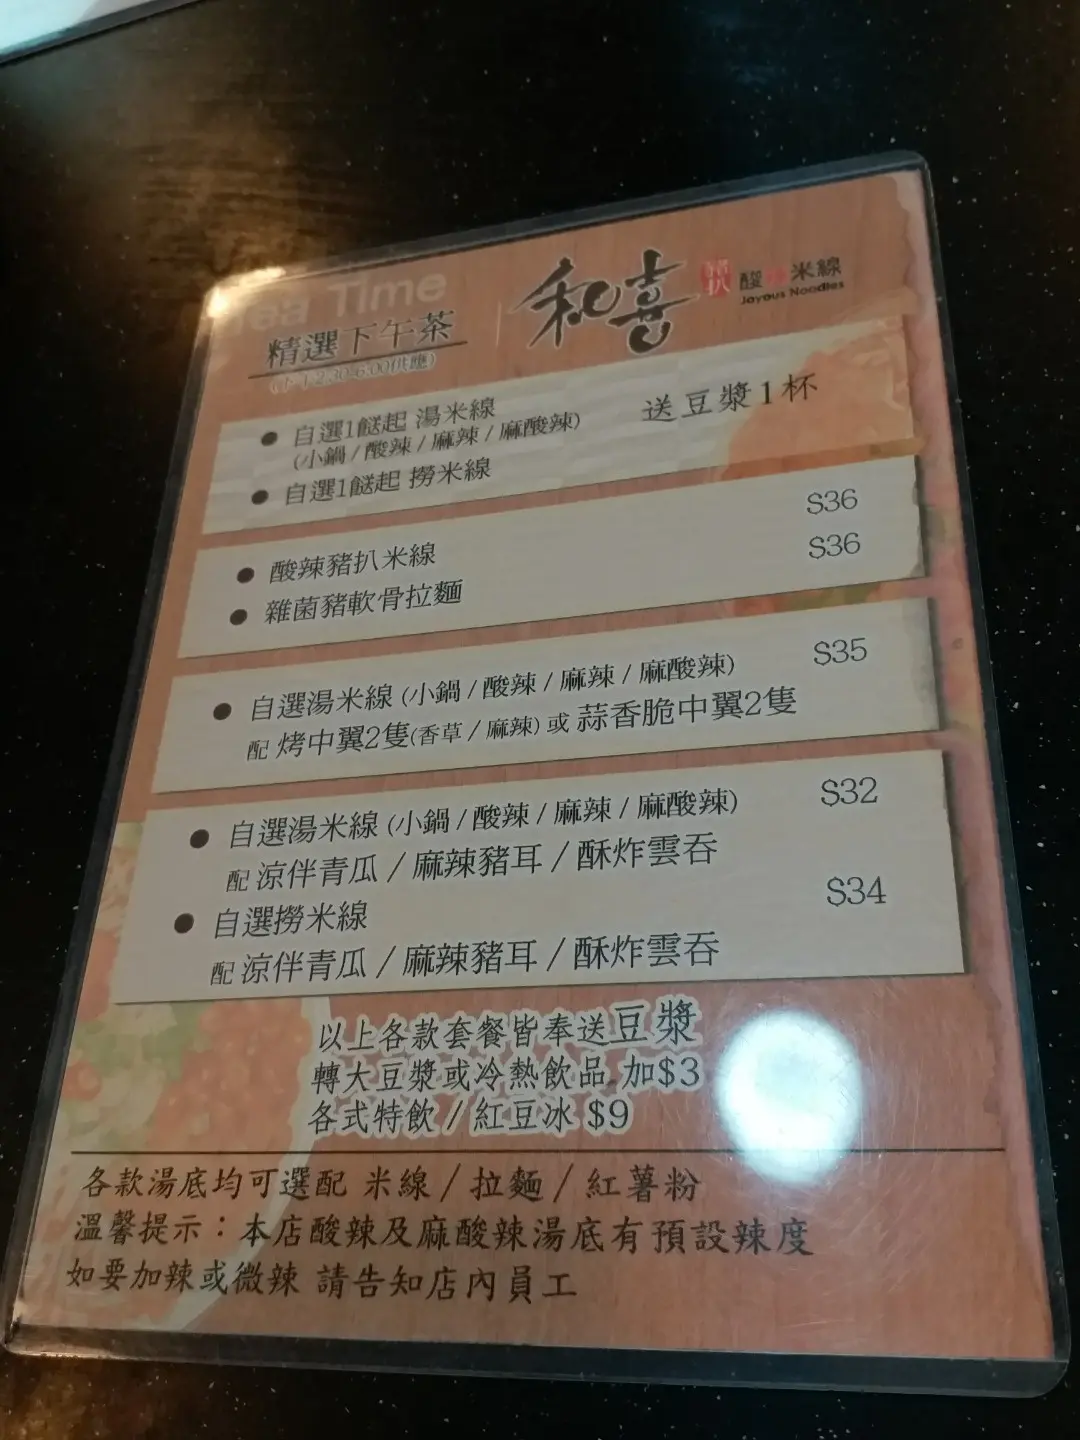 Tea Time
精選下午茶
和喜
豬扒 酸辣米線
Joyous Noodles
自選1餸起 湯米線
(小鍋/酸辣/麻辣/麻酸辣)
送豆漿1杯
自選1餸起 撈米線
酸辣豬扒米線 $36
雜菌豬軟骨拉麵 $36
自選湯米線(小鍋/酸辣/麻辣/麻酸辣) $35
配 烤中翼2隻(香草/麻辣)或 蒜香脆中翼2隻
自選湯米線(小鍋/酸辣/麻辣/麻酸辣) $32
配 涼伴青瓜/麻辣豬耳/酥炸雲吞
自選撈米線 $34
配 涼伴青瓜/麻辣豬耳/酥炸雲吞
以上各款套餐皆奉送豆漿
轉大豆漿或冷熱飲品 加$3
各式特飲/紅豆冰 $9
各款湯底均可選配 米線/拉麵/紅薯粉
溫馨提示：本店酸辣及麻酸辣湯底有預設辣度
如要加辣或微辣 請告知店內員工